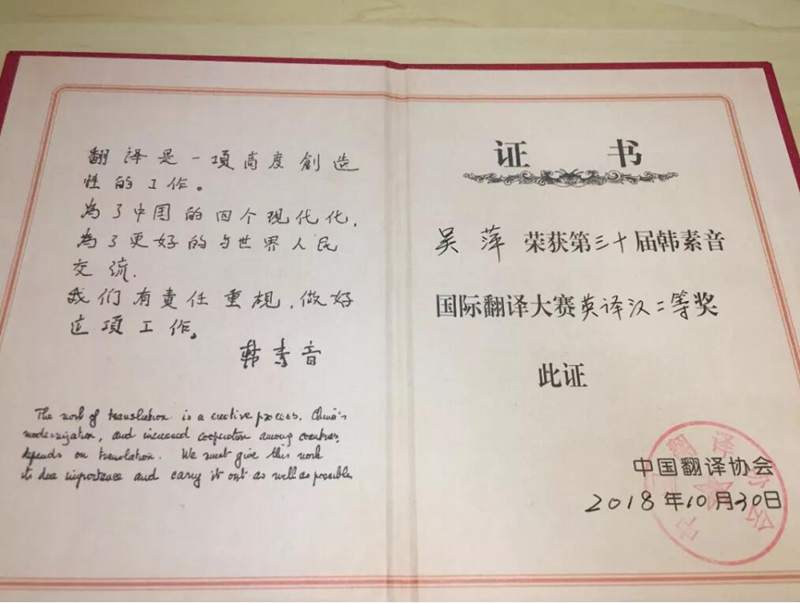 翻译是一項高度創造
性的工作。
为了中国的四个现代化,
为了更好的与世界人民
交流.
我们有責任重视,做好
这項工作。
韩素音
The work of translation is a creative process. China's
modernization, and increased cooperation among countries,
depends on translation. We must give this work
its due importance and carry it out as well as possible
证 书
吴萍 荣获第三十届韩素音
国际翻译大赛英译汉二等奖
此证
中国翻译协会
2018年10月30日